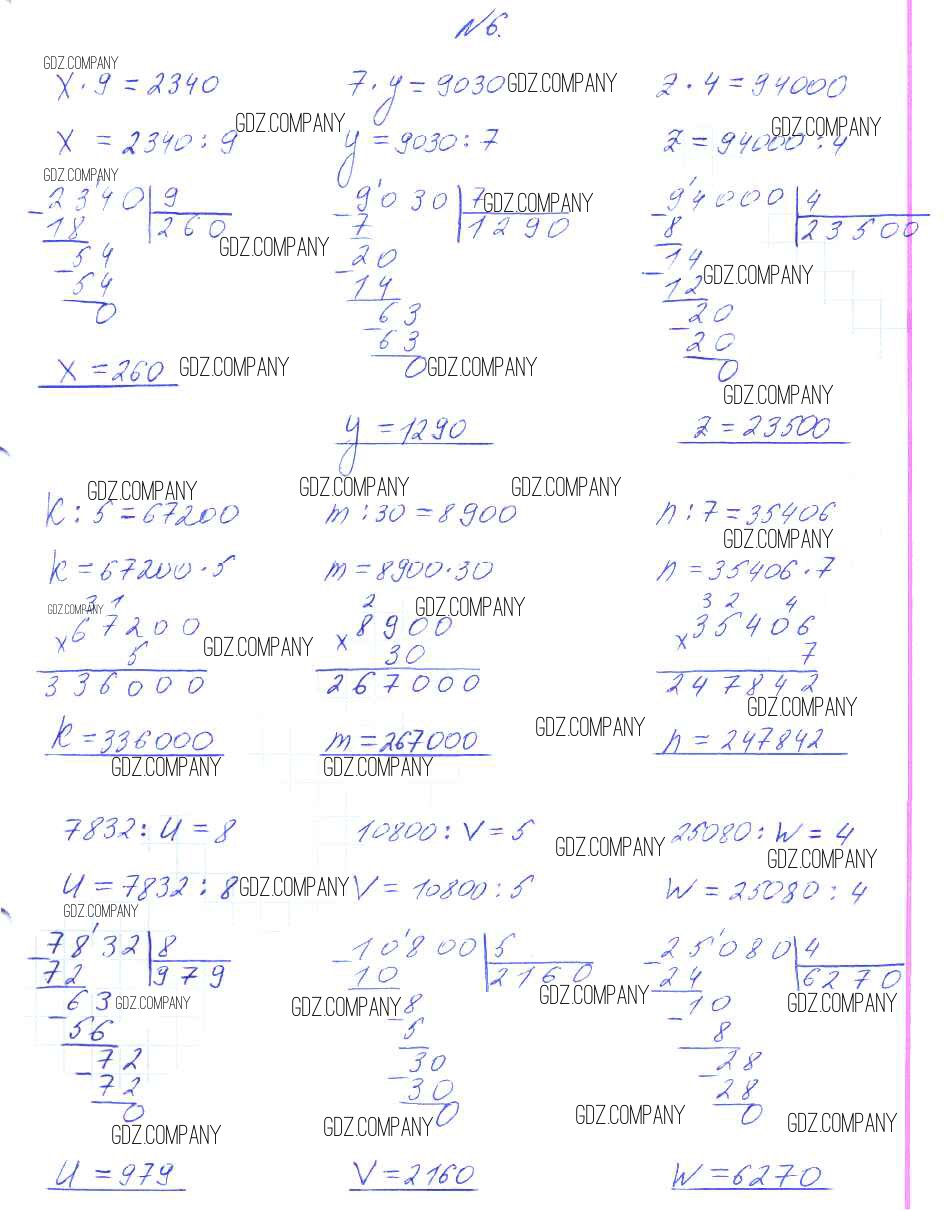 N 6.
GDZ.COMPANY
x · 9 = 2340 7 · y = 9030 GDZ.COMPANY z · 4 = 94000
x = 2340 : 9 GDZ.COMPANY y = 9030 : 7 z = 94000 : 4 GDZ.COMPANY
GDZ.COMPANY
2340 9 9030 7 GDZ.COMPANY 94000 4
18 260 GDZ.COMPANY 7 1290 8 23500
54 20 14 GDZ.COMPANY
54 14 12
0 63 20
63 20
x = 260 GDZ.COMPANY 0 GDZ.COMPANY 0
GDZ.COMPANY
y = 1290 z = 23500
GDZ.COMPANY GDZ.COMPANY GDZ.COMPANY
k : 5 = 67200 m : 30 = 8900 n : 7 = 35406
GDZ.COMPANY
k = 67200 · 5 m = 8900 · 30 n = 35406 · 7
GDZ.COMPANY 3 1 2 GDZ.COMPANY 3 2 4
x 67200 x 8900 x 35406
5 GDZ.COMPANY 30 7
336000 267000 247842
GDZ.COMPANY GDZ.COMPANY
k = 336000 m = 267000 n = 247842
GDZ.COMPANY GDZ.COMPANY
7832 : U = 8 10800 : V = 5 GDZ.COMPANY 25080 : W = 4
GDZ.COMPANY
U = 7832 : 8 GDZ.COMPANY V = 10800 : 5 W = 25080 : 4
GDZ.COMPANY
7832 8 10800 5 25080 4
72 979 10 2160 24 6270
63 GDZ.COMPANY GDZ.COMPANY 8 GDZ.COMPANY 10 GDZ.COMPANY
56 5 8
72 30 28
72 30 28
0 0 0
GDZ.COMPANY GDZ.COMPANY GDZ.COMPANY GDZ.COMPANY
U = 979 V = 2160 W = 6270